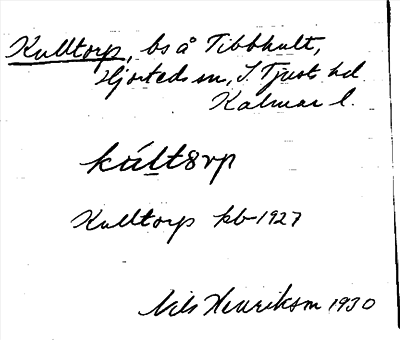 Kulltorp, bs å Tibbhult,
Hjorteds sn, S. Tjust hd.
Kalmar l.
kúltørp
Kulltorp kb 1927
Nils Henrikson 1930